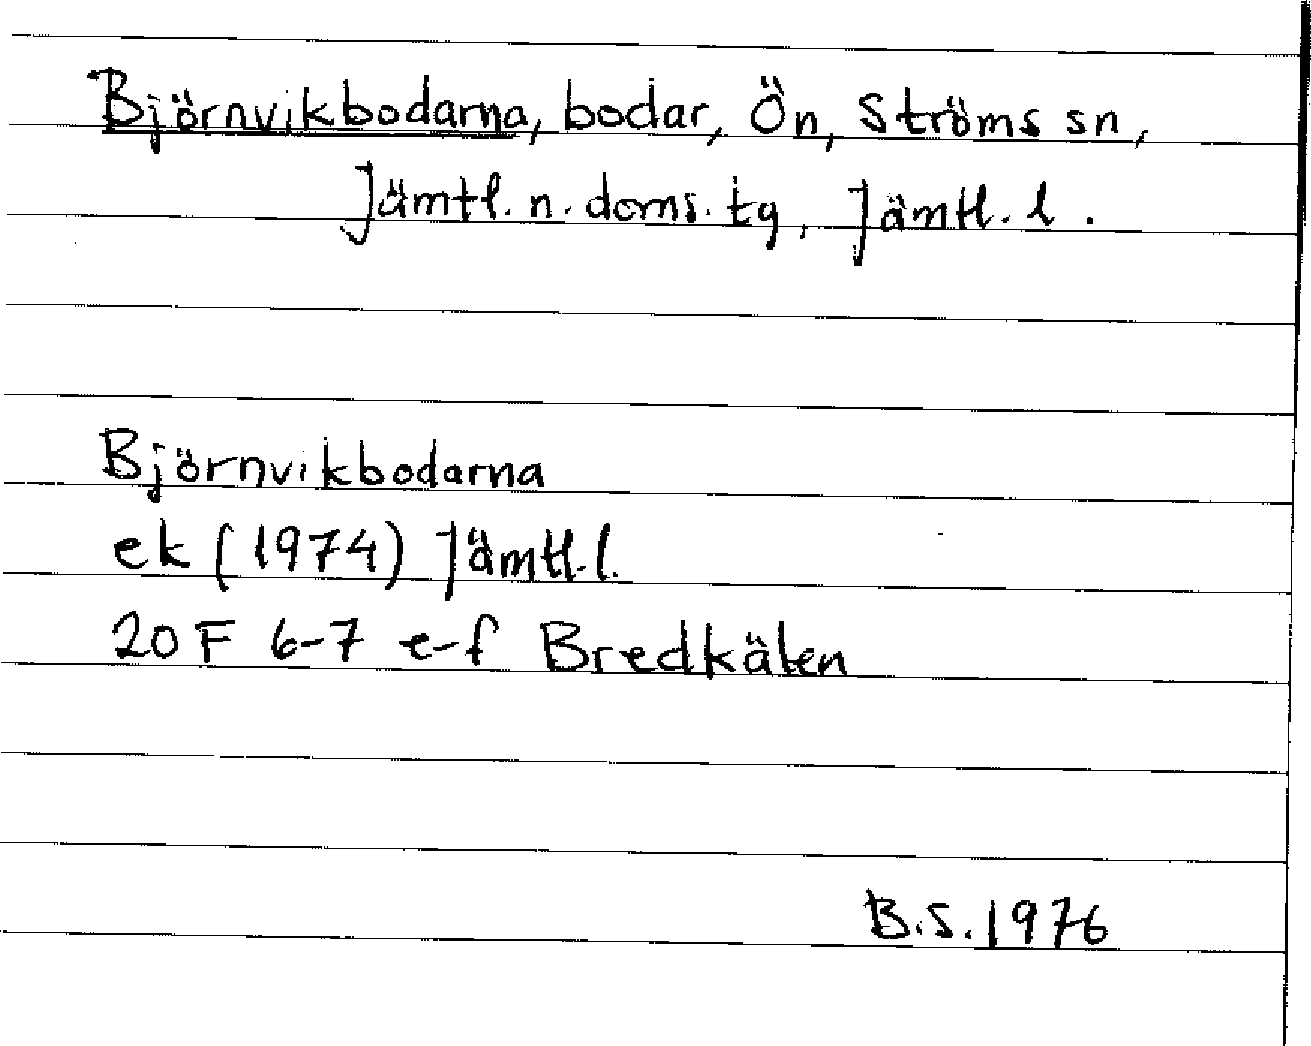 Björnvikbodarna, bodar, Ön, Ströms sn,
Jämtl. n. doms. tg, Jämtl. l.
Björnvikbodarna
ek (1974) Jämtl. l.
20 F 6-7 e-f Bredkälen
B.S. 1976